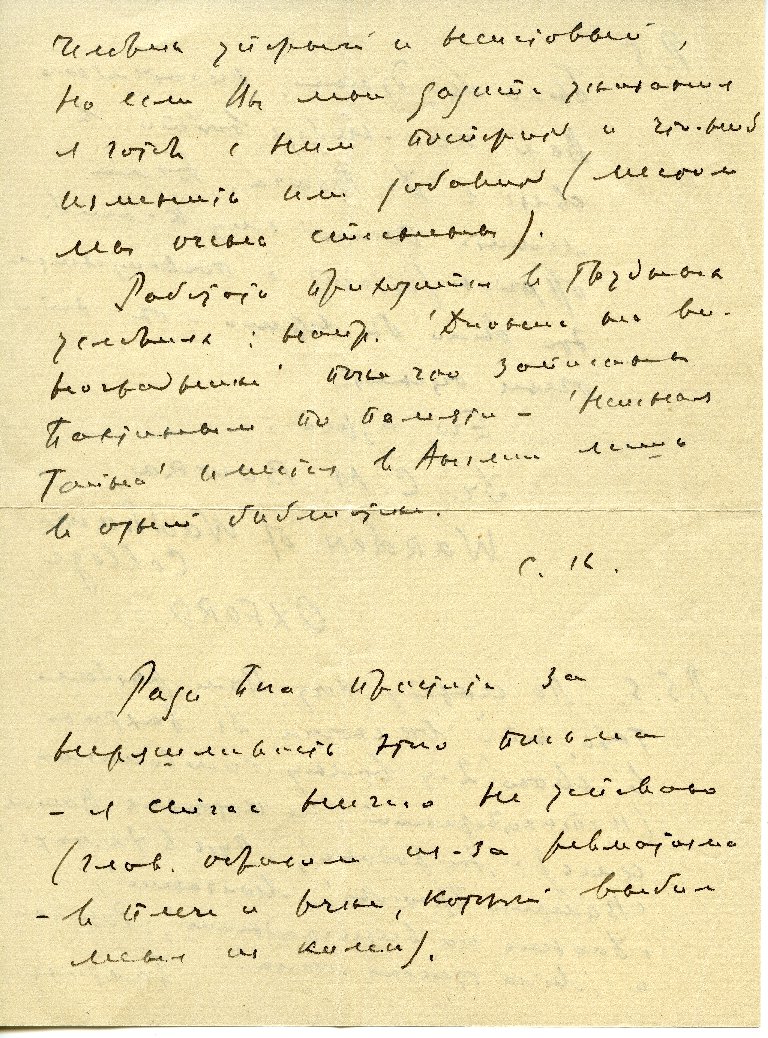 человек упорный и неистовый,
но если Вы мне дадите указания
я готов с ним поспорить и что-ниб
изменить или добавить (местом
мы очень стеснены).
Работать приходится в трудных
условиях; напр. 'Дионис на ви-
нограднике' пока что записаны
по памяти – 'Нежная
Тайна' имеется в Англии лишь
в одной библиотеке.
С. К.
Ради Бога простите за
неряшливость этого письма
– я сейчас ничего не успеваю
(глав. образом из-за ревматизма
– в плече и руке, который выбил
меня из колеи).